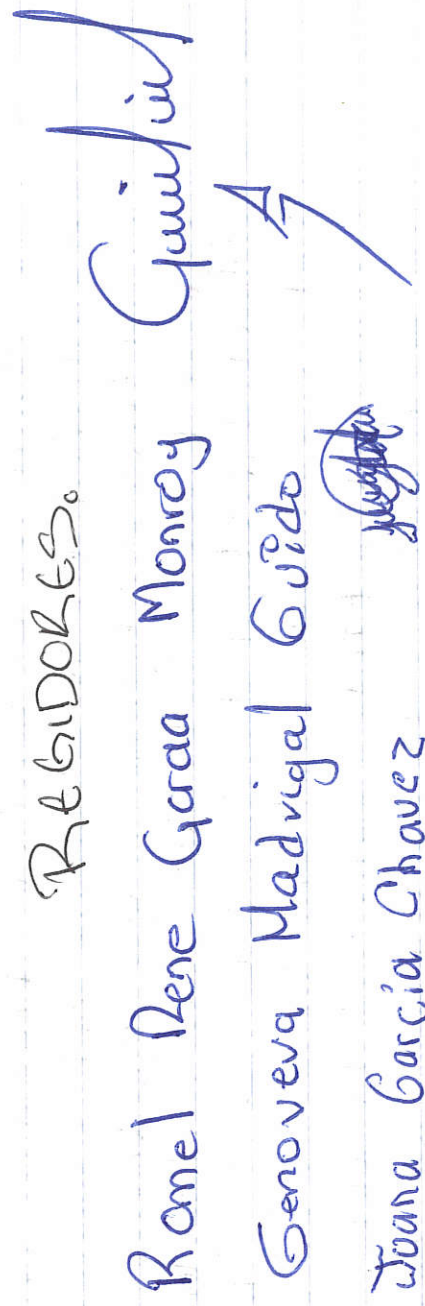 REGIDORES.
Ramel Rene Garcia Monroy
Genoveva Madrigal Guido
Joana Garcia Chavez